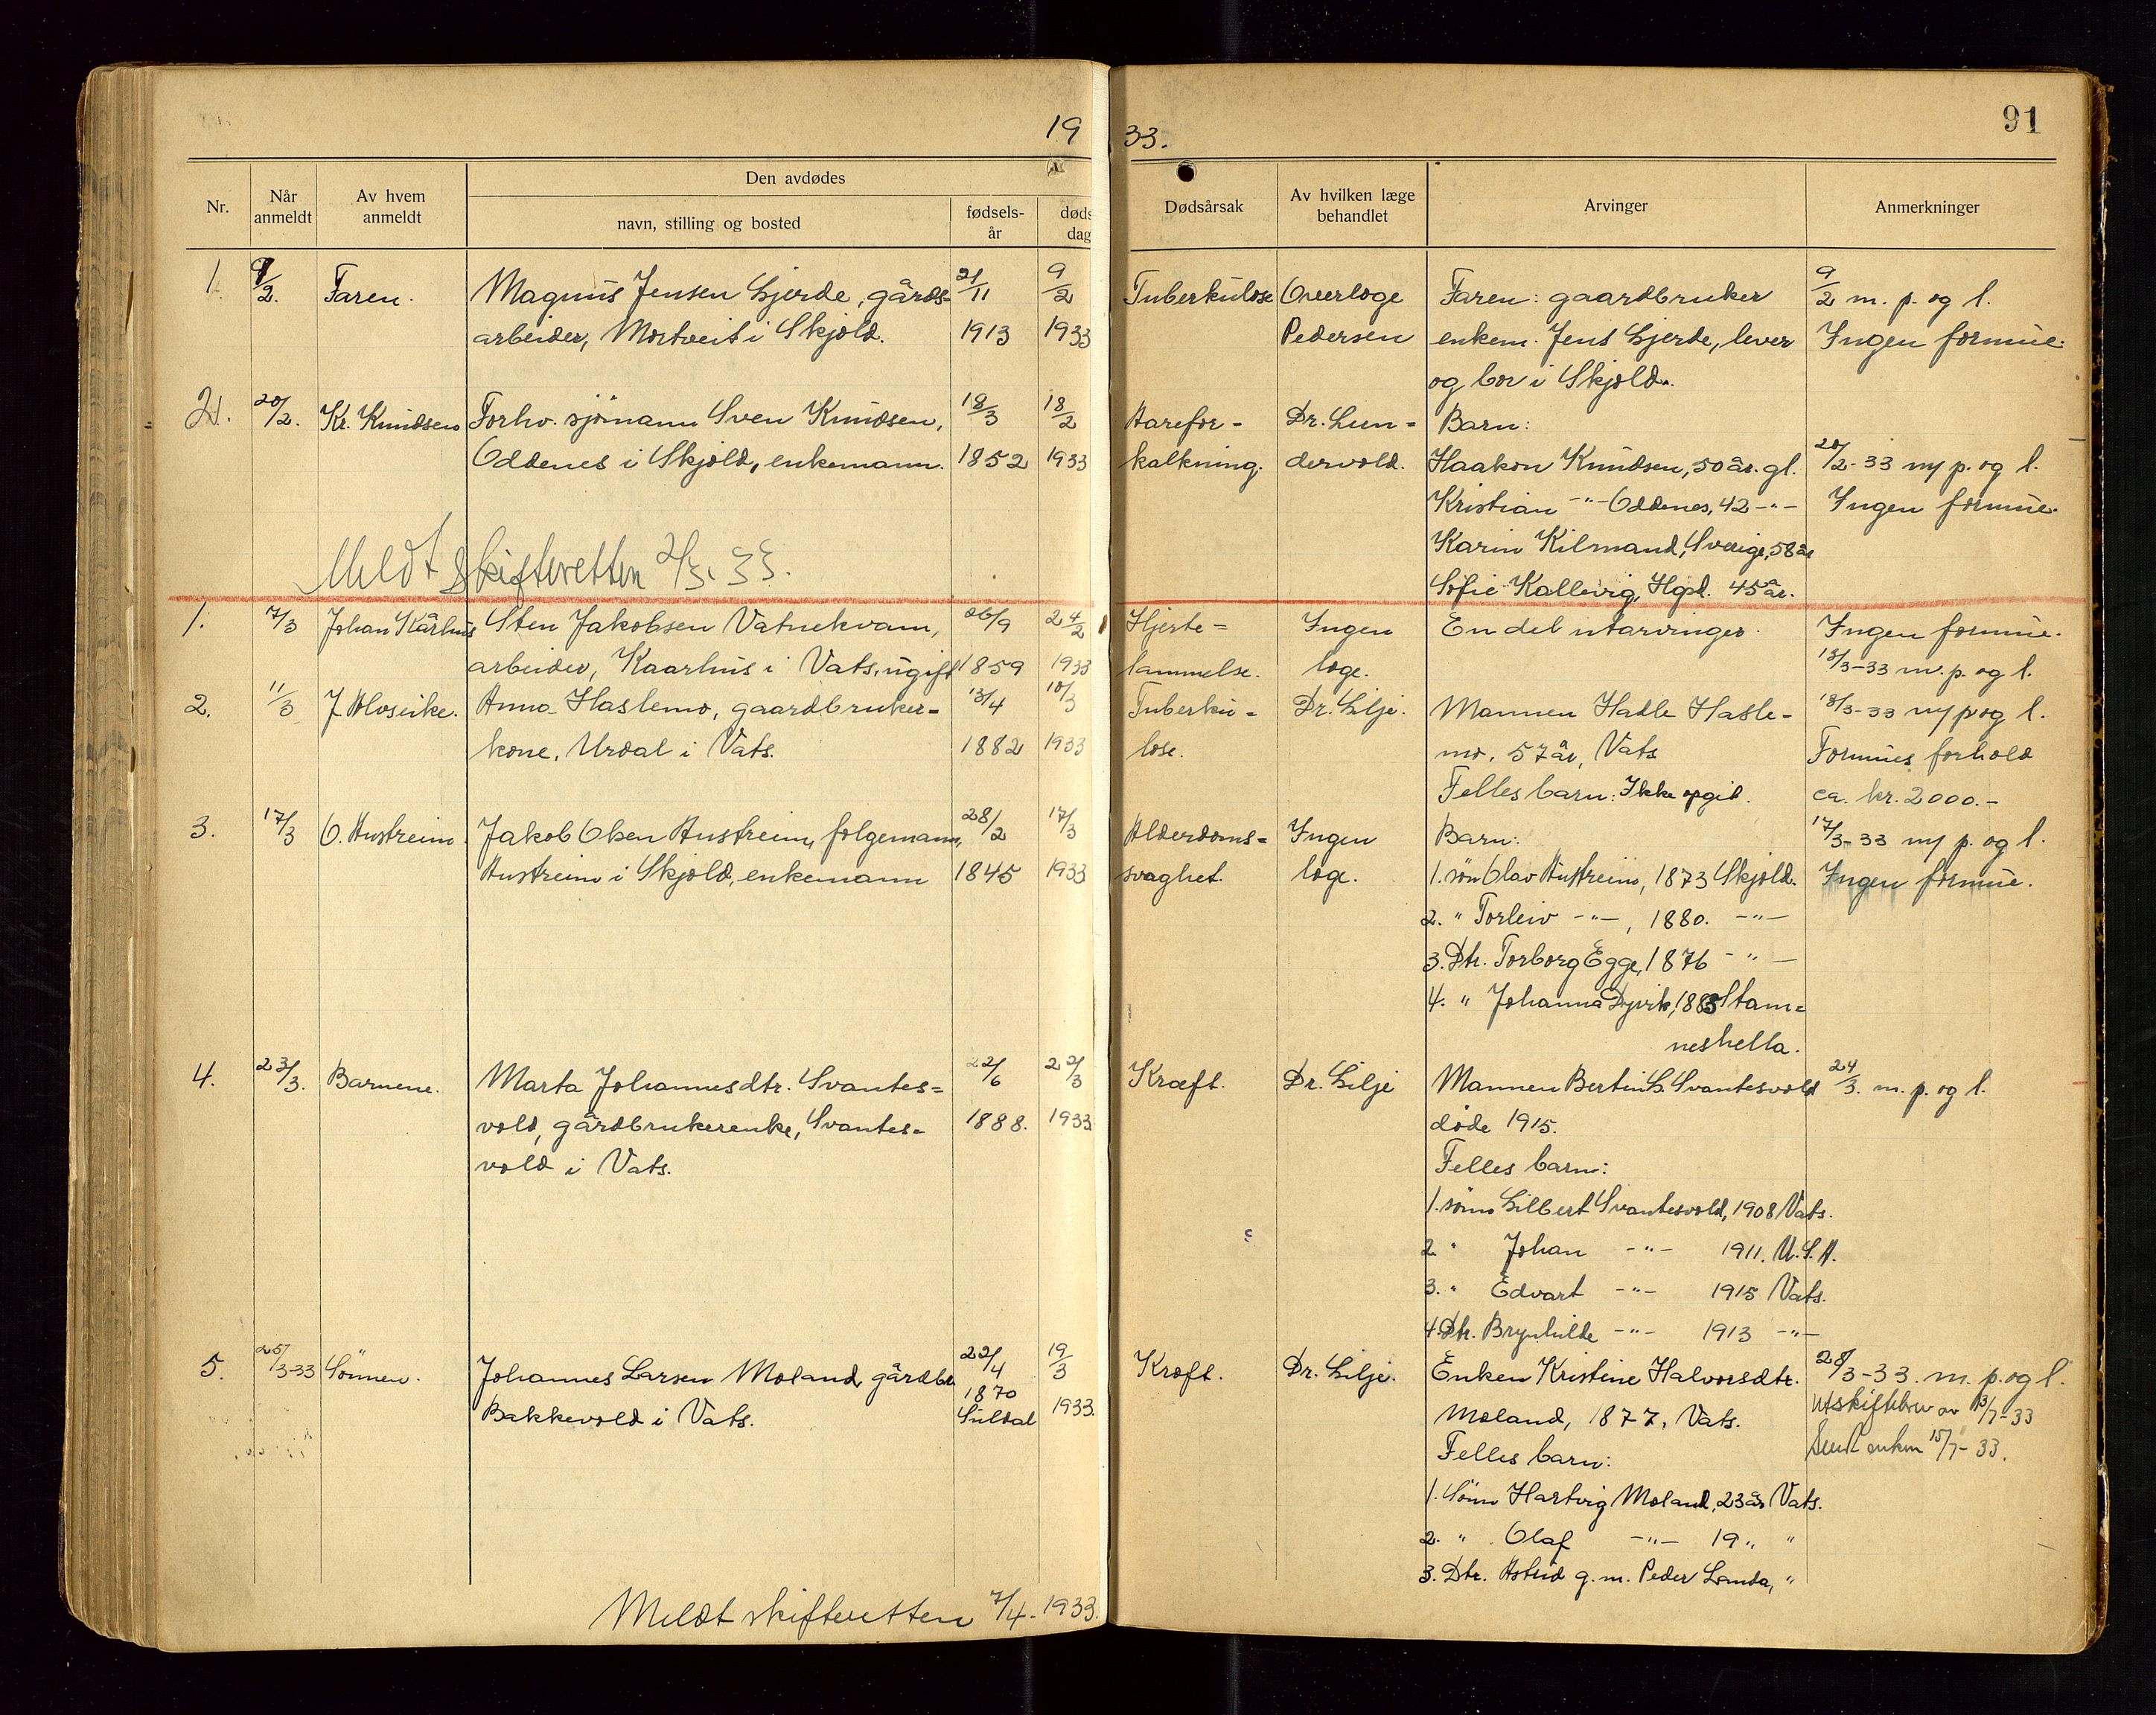 19 33.
91
Nr.
Når anmeldt
Av hvem anmeldt
Den avdødes
navn, stilling og bosted
fødsels-år
døds dag
Dødsårsak
Av hvilken læge behandlet
Arvinger
Anmerkninger
1. 9/2. Faren. Magnus Jensen Gjerde, gårds- 21/11 9/2 Tuberkulose Overlæge Faren: gaardbruker 9/2 m. p. og l.
arbeider, Mortveit i Skjold. 1913 1933 Pedersen enkem. Jens Gjerde, lever Ingen formue.
og bor i Skjold.
2. 20/2. Kr. Knudsen Forhv. sjömann Sven Knudsen, 18/3 18/2 Aarefor- Dr. Lun= Barn:
Oddenes i Skjold, enkemann. 1852 1933 kalkning. dervold. Haakon Knudsen, 50 år. gl. 20/2-33 m p. og l.
Kristian -"- Oddenes, 42 -"- Ingen formue.
Karin Kilmand, Sverige, 58 år
Meldt skifteretten 2/3. 33.
Sofie Kallevig, Hgsd. 45 år.
1. 17/3 Johan Kårhus Sten Jakobsen Vatnekvam, 26/9 24/2 Hjerte= Ingen En del utarvinger. Ingen formue.
arbeider, Kaarhus i Vats, ugift 1859 1933 lammelse. læge. 18/3-33 m. p. og l.
2. 11/3 J. Alvseike. Anna Haslemo, gaardbruker= 13/4 10/3 Tuberku= Dr. Lilje. Mannen Hadle Hasle- 18/3-33 m p og l.
kone, Urdal i Vats. 1882 1933 lose. mo, 57 år, Vats Formues forhold
Felles barn: Ikke opgit. ca. kr. 2000.-
3. 17/3 O. Austreim. Jakob Olsen Austreim, folgemann, 28/2 17/3 Alderdoms= Ingen Barn: 17/3-33 m p. og l.
Austreim i Skjold, enkemann 1845 1933 svaghet. læge. 1. sön Olav Austreim, 1873 Skjold. Ingen formue.
2. " Torleiv -"-, 1880. -"-
3. Dtr. Torborg Egge, 1876 -"-
4. " Johanna Dyvik, 1883 Stam=
neshella.
4. 23/3. Barnene. Marta Johannesdtr. Svantes= 22/6 22/3 Kræft. Dr. Lilje Mannen Bertin G. Svantesvold 24/3. m. p. og l.
vold, gårdbrukerenke, Svantes= 1888. 1933. döde 1915.
vold i Vats. Felles barn:
1. sönn Gilbert Svantesvold, 1908 Vats.
2. " Johan -"- 1911. U.S.A.
3. " Edvart -"- 1915 Vats.
4. Dtr. Brynhilde -"- 1913 -"-
5. 25/3-33 Sönnen. Johannes Larsen Moland, gårdbr. 22/4 19/3 Kræft. Dr. Lilje. Enken Kristine Halvorsdtr. 28/3-33. m. p. og l.
1870
Bakkevold i Vats. Suldal 1933. Moland, 1877, Vats. Utskiftebrev av 13/7-33
Felles barn: Sendt enken 15/7-33.
1. Sönn Hartvig Moland, 23 år Vats.
2. " Olaf -"- 19 " "
3. Dtr. Astrid g. m. Peder Landa, "
Meldt skifteretten 7/4-1933.